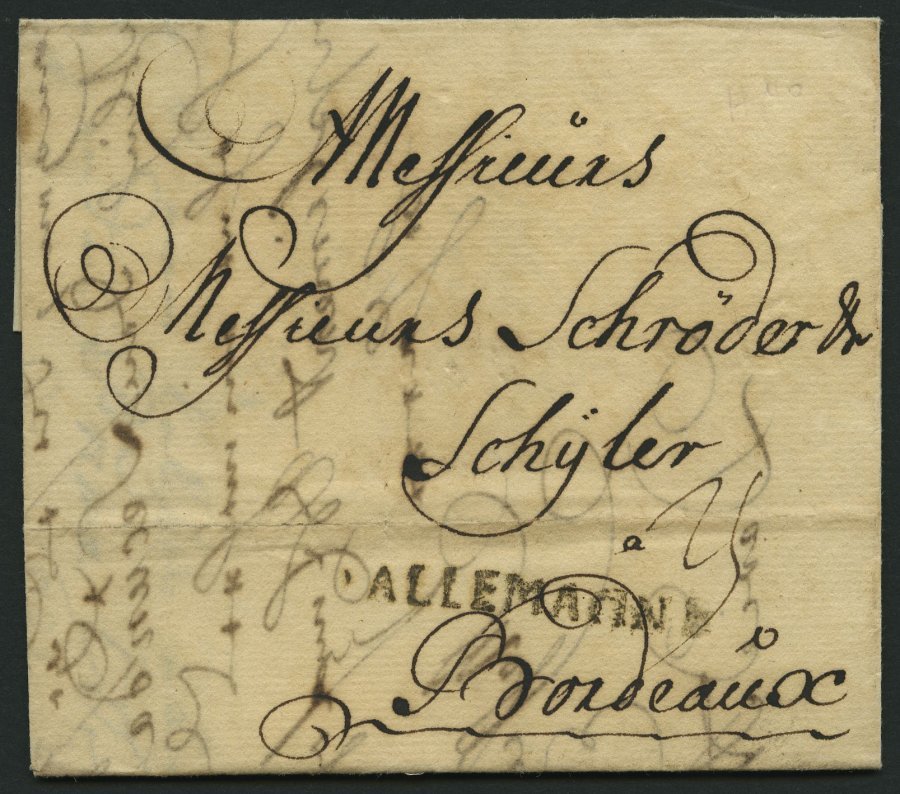 A Messieurs
Messieurs Schröder &
Schÿler
a
ALLEMAGNE
Bordeaux